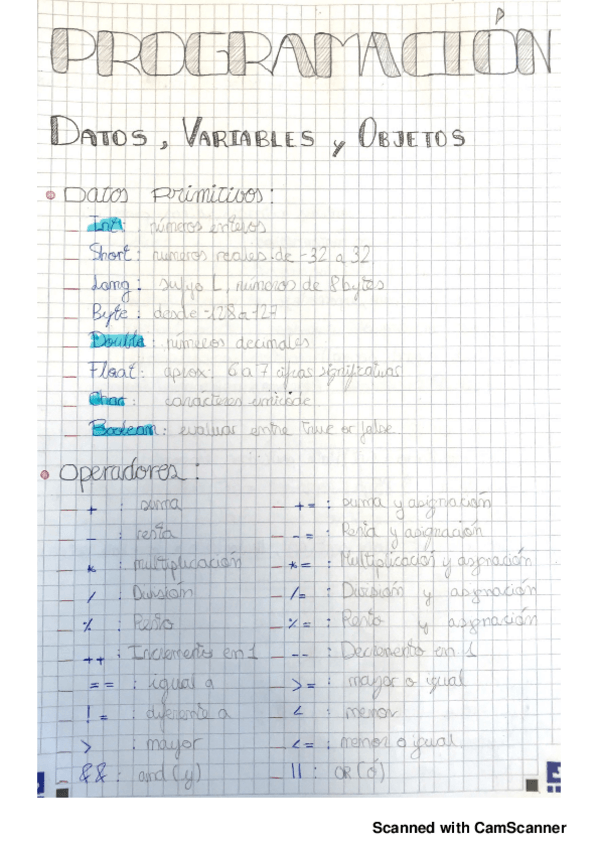 PROGRAMACIÓN
DATOS, VARIABLES y OBJETOS
Datos Primitivos:
Int: números enteros
Short: números reales de -32 a 32
Long: sufijo L, números de 8 bytes
Byte: desde -128 a 127
Double: números decimales
Float: aprox: 6 a 7 cifras significativas
Char: carácteres unicode
Boolean: evaluar entre true or false
Operadores:
+ : suma
+= : suma y asignación
- : resta
-= : Resta y asignación
* : multiplicación
*= : Multiplicación y asignación
/ : División
/= : División y asignación
% : Resto
%= : Resto y asignación
++ : Incremento en 1
-- : Decremento en 1
== : igual a
>= : mayor o igual
!= : diferente a
< : menor
> : mayor
<= : menor o igual
&& : and (y)
|| : OR (ó)
Scanned with CamScanner